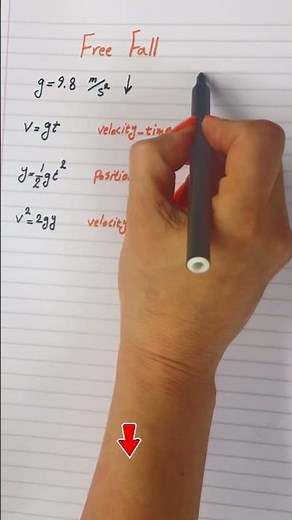 Free Fall
g = 9.8 m/s² ↓
v = gt velocity-time
y = ½gt² Position
v² = 2gy velocity